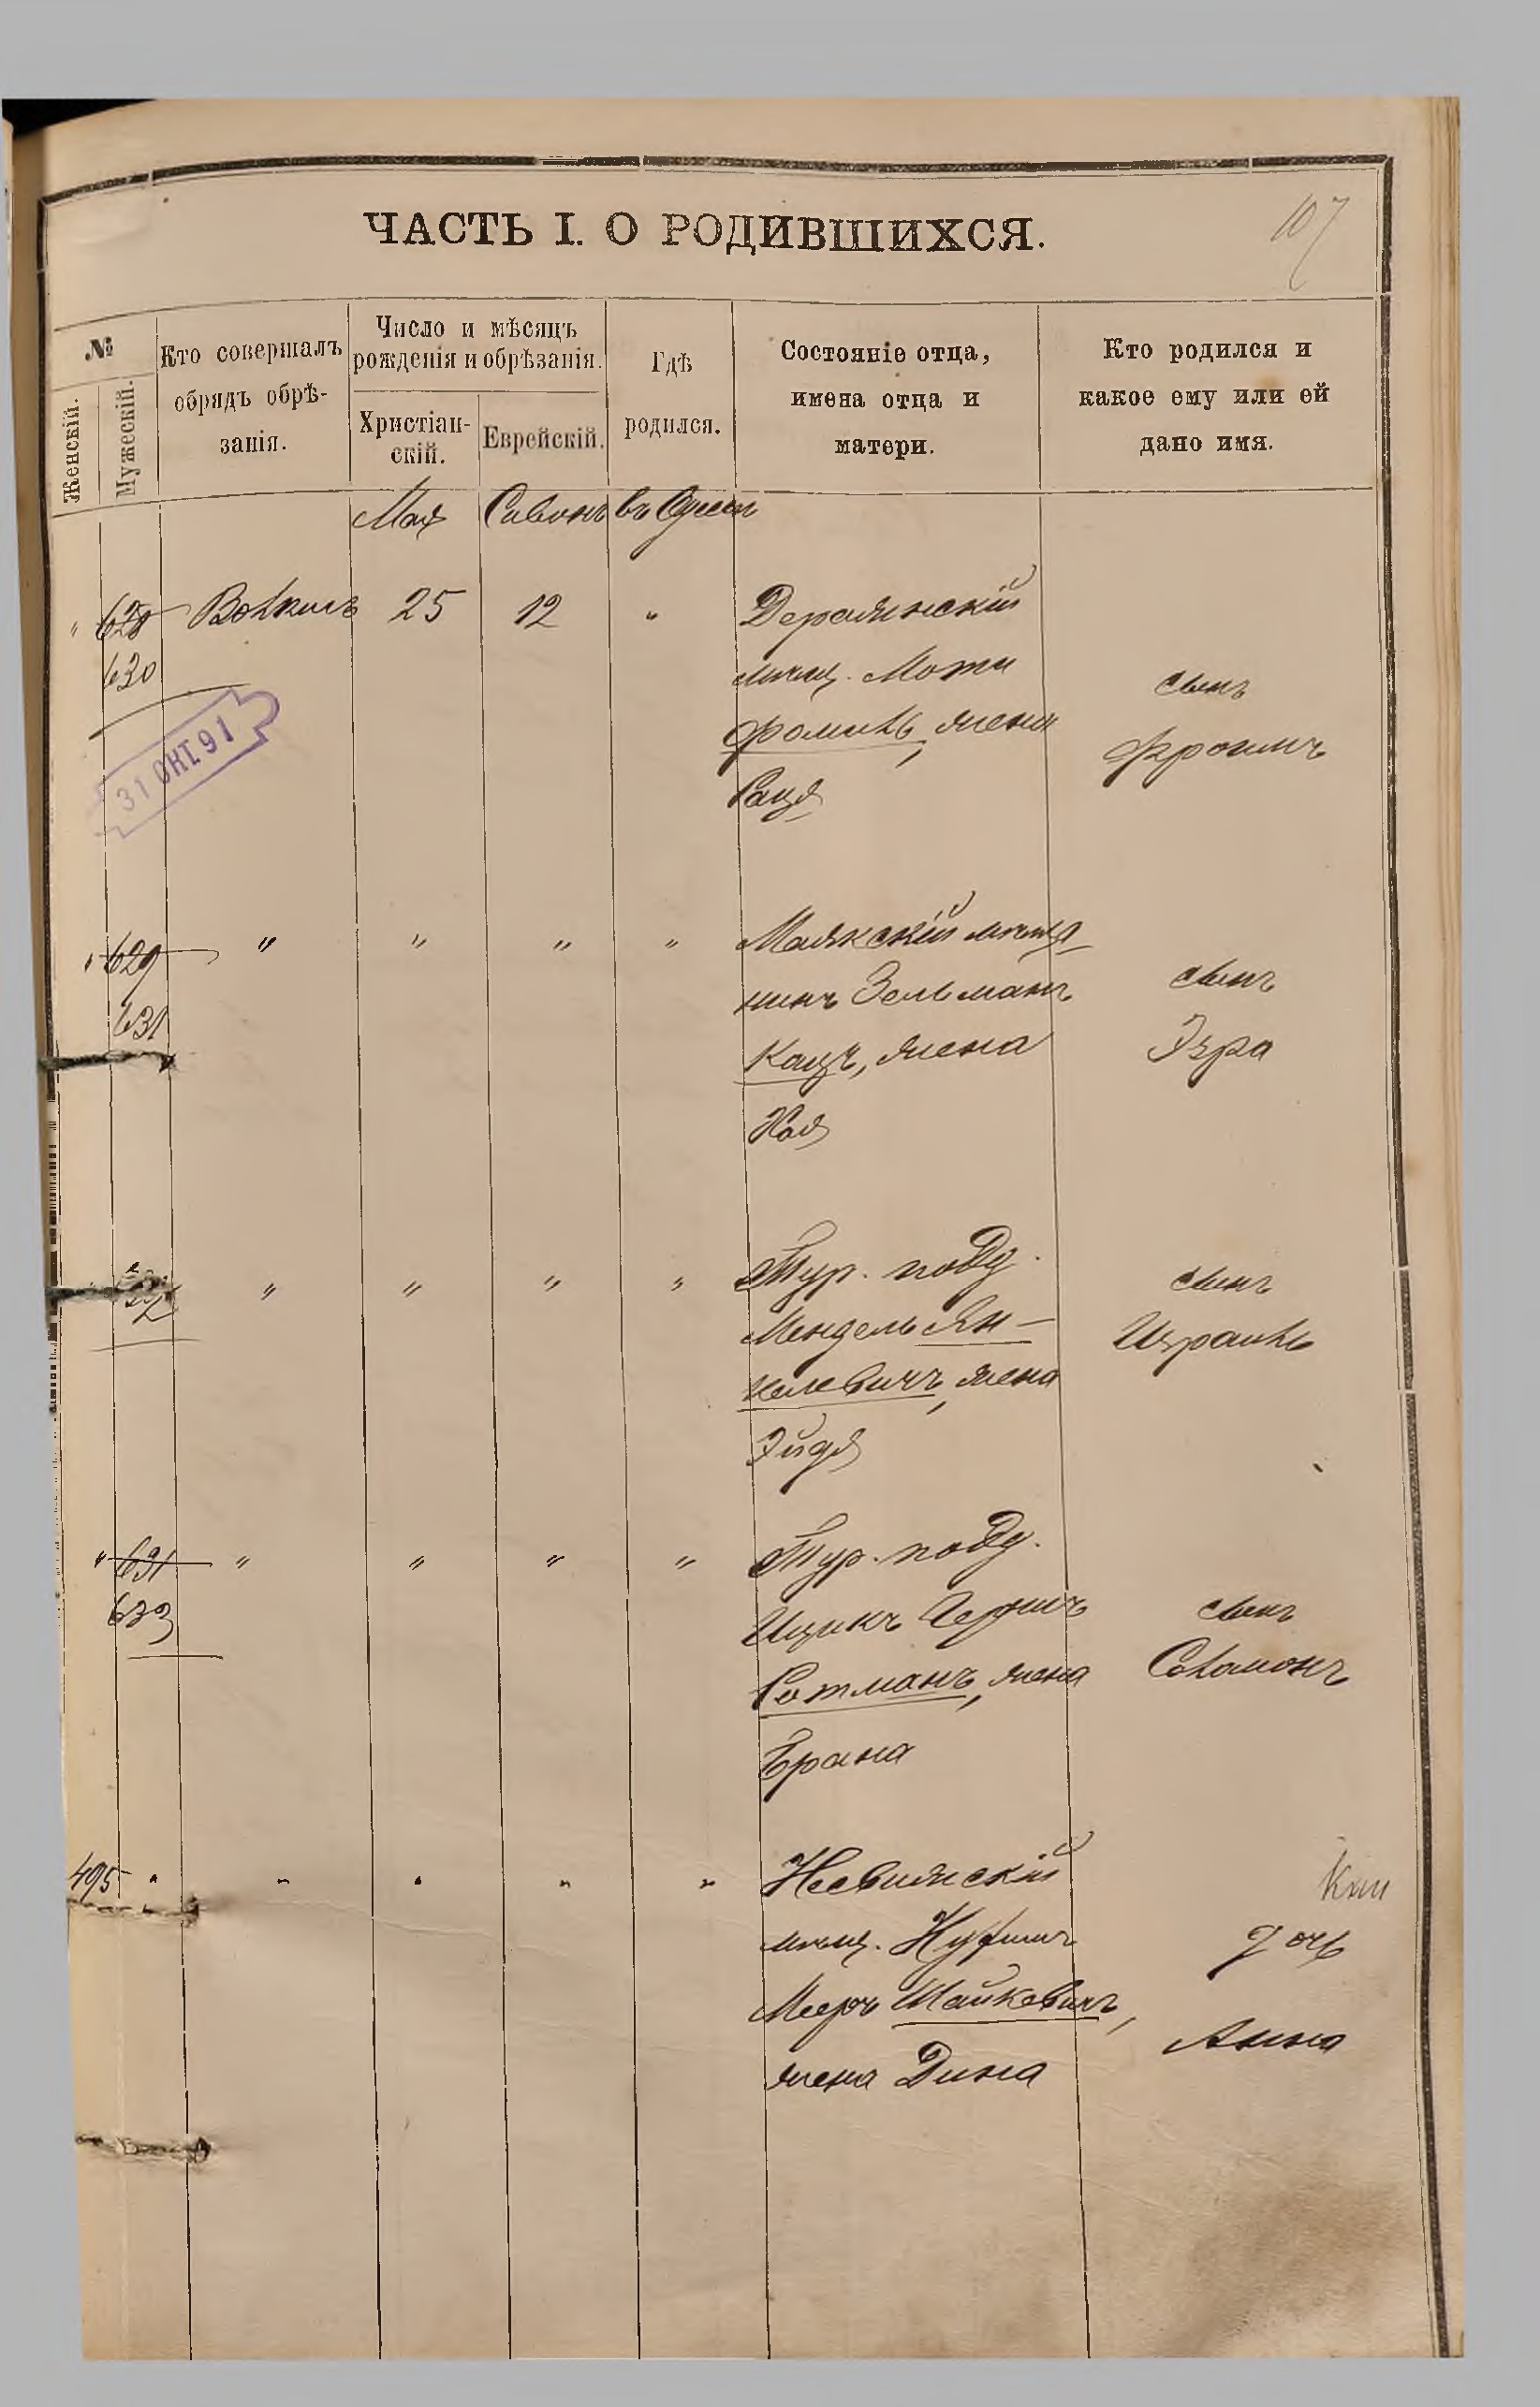 107
ЧАСТЬ I. О РОДИВШИХСЯ.
№
Женскій.
Мужескій.
Кто совершалъ
обрядъ обрѣ-
занія.
Число и мѣсяцъ
рожденія и обрѣзанія.
Христіан-
скій.
Еврейскій.
Гдѣ
родился.
Состояніе отца,
имена отца и
матери.
Кто родился и
какое ему или ей
дано имя.
Мая Сивонъ въ Одессѣ
" 628 Волкисъ 25 12 "
630
31 ОКТ 91
Деражнскій
мѣщ. Моти
Фромилъ, жена
Рая
сынъ
Фроимъ
" 629 " " " "
631
Маякскій мѣща-
нинъ Зельманъ
Кацъ, жена
Хая
сынъ
Эзра
" " " "
Тур. подд.
Мендель Ян-
келевичъ, жена
Эйдя
сынъ
Израиль
" 631 " " " "
633
Тур. подд.
Ицикъ Гершъ
Ротманъ, жена
Брана
сынъ
Соломонъ
495 " " " " "
мѣщ. Нухимъ
Мееръ Шайкевичъ,
жена Дина
дочь
Анна